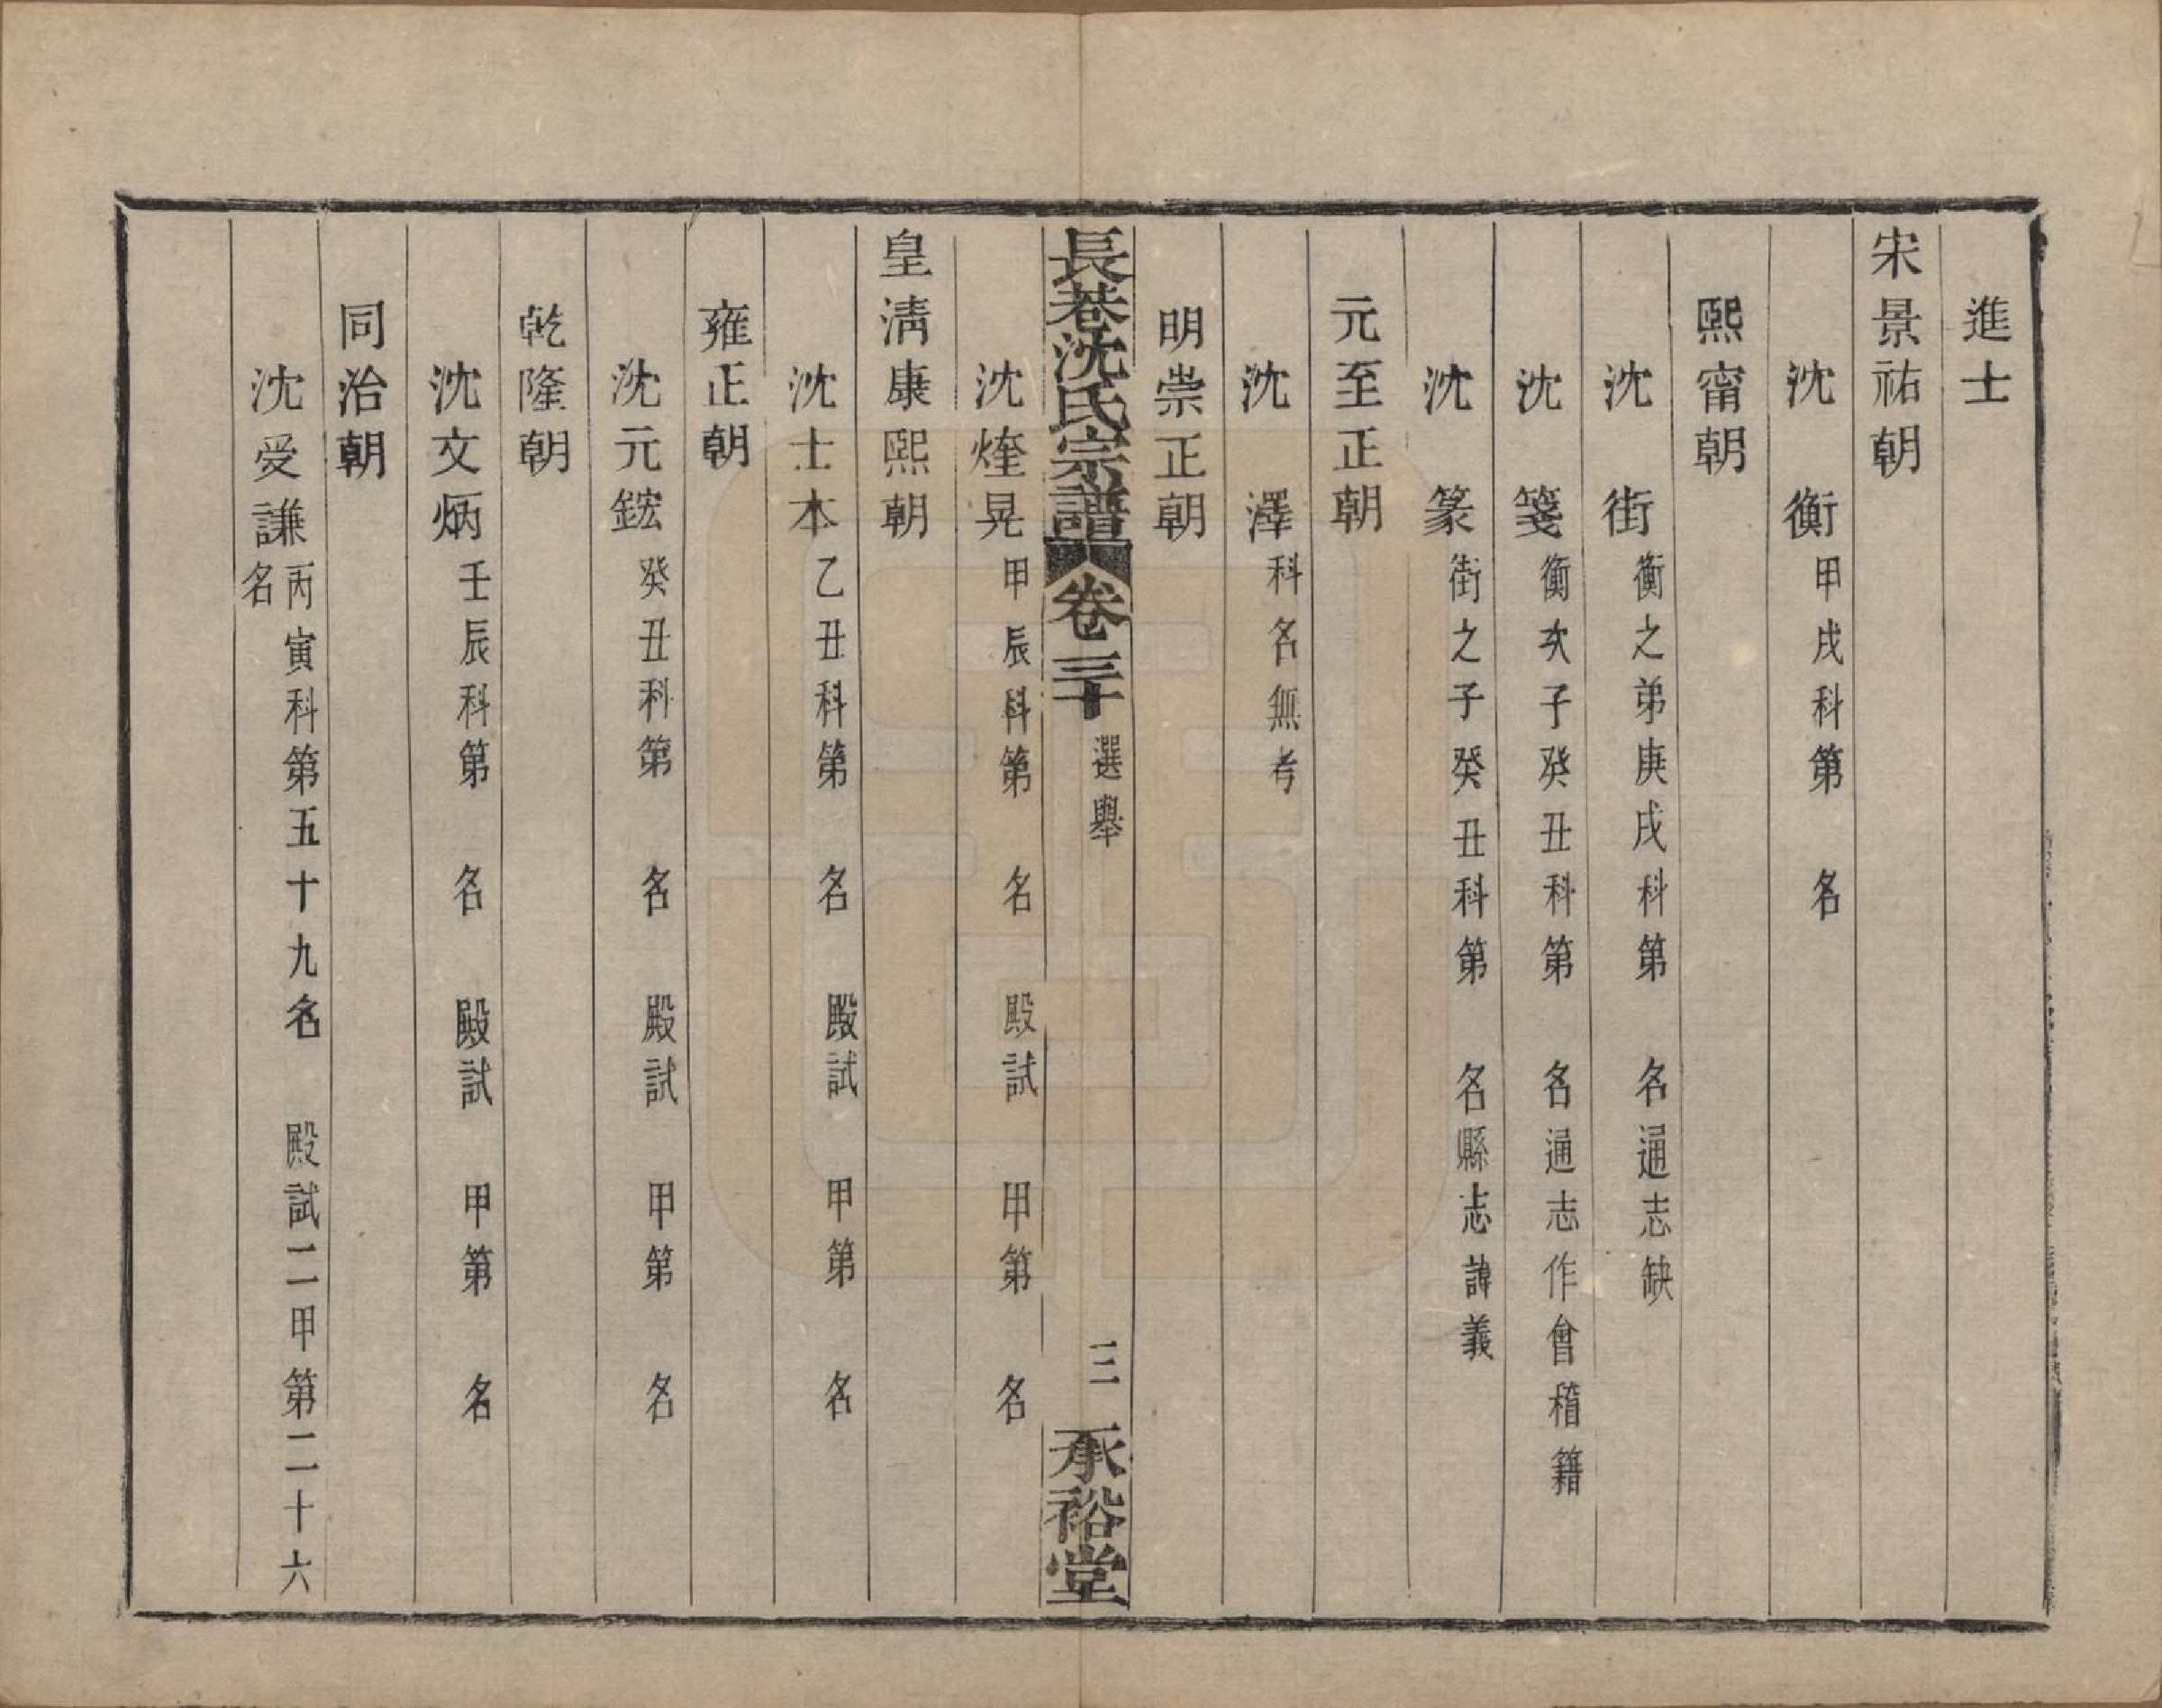 進士
宋景祐朝
沈 衡甲戌科第 名
熙甯朝
沈 街衡之弟庚戌科第 名通志缺
沈 箋衡次子癸丑科第 名通志作會稽籍
沈 篆街之子癸丑科第 名縣志諱義
元至正朝
沈 澤科名無考
明崇正朝
長巷沈氏宗譜 卷三十 選舉 三 承裕堂
沈煃晃甲辰科第 名 殿試 甲第 名
皇清康熙朝
沈士本乙丑科第 名 殿試 甲第 名
雍正朝
沈元鋐癸丑科第 名 殿試 甲第 名
乾隆朝
沈文炳壬辰科第 名 殿試 甲第 名
同治朝
沈受謙丙寅科第五十九名 殿試二甲第二十六
名